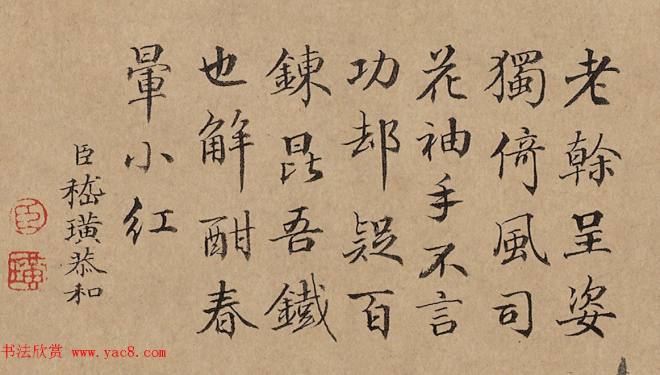 老榦呈姿
獨倚風司
花袖手不言
功却疑百
鍊昆吾鐵
也解酣春
暈小红
臣嵇璜恭和
臣
璜
书法欣赏 www.yac8.com